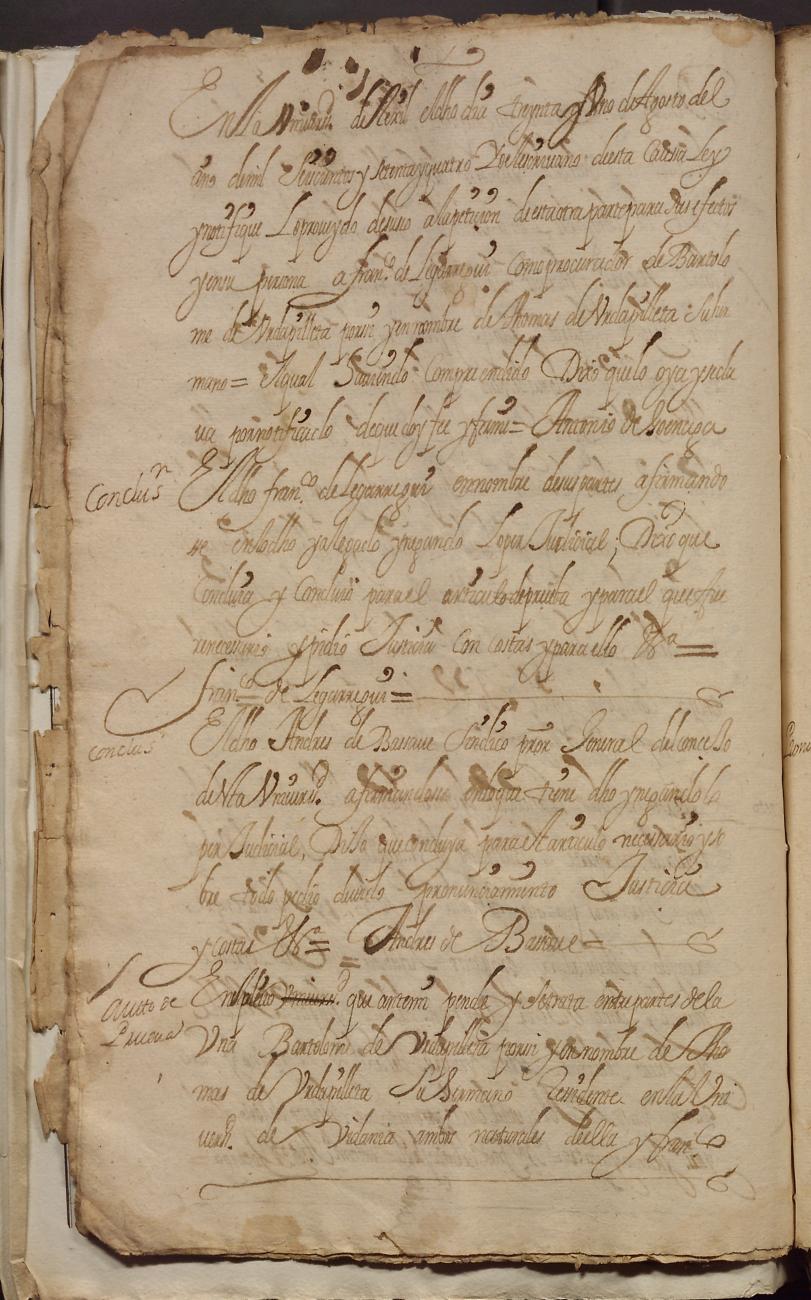 En la Vniuersd. de el dho dia treynta y Vno de Agosto del
año de mil Seiscientos y setenta y quatro Yo el escriuano de esta Causa Ley
y notifique Lo proueydo de suso a la peticion de esta otra parte para sus efectos
y en su persona a franco. de Legarregui Como procurador de Bartolo
me de Vrdapilleta por si y en nombre de Thomas de Vrdapilleta Su her
mano = el qual Siendo Comprendido Dixo que lo oya y se da
ua por notificado de que doy fee y firme = Antonio de
Conclusn
El dho franco. de Legarregui en nombre de sus partes afirmando
se en lo dho y alegado y negando Lo perJudicial, Dixo que
Concluya y Concluio para el articulo de prueba y para el que fue
re necesario y pidio Justicia Con costas y para ello &a =
franco. de Legarregui =
conclus
El dho Andres de Basaue Sindico pror General del concejo
de esta Vniuersd. afirmandose en lo que tiene dho y negando lo
perJudicial, Dijo que concluya para el articulo necesario y so
bre todo pedio deuido pronunciamiento Justicia
y costas &a = Andres de Basaue =
Autto de
Prueua
En el pleito Vniuersd. que ante mi pende y se trata entre partes de la
Vna Bartolome de Vrdapilleta por si y en nombre de Tho
mas de Vrdapilleta Su Hermano Residente en la Vni
uersd. de Vidania ambos naturales de ella y franco